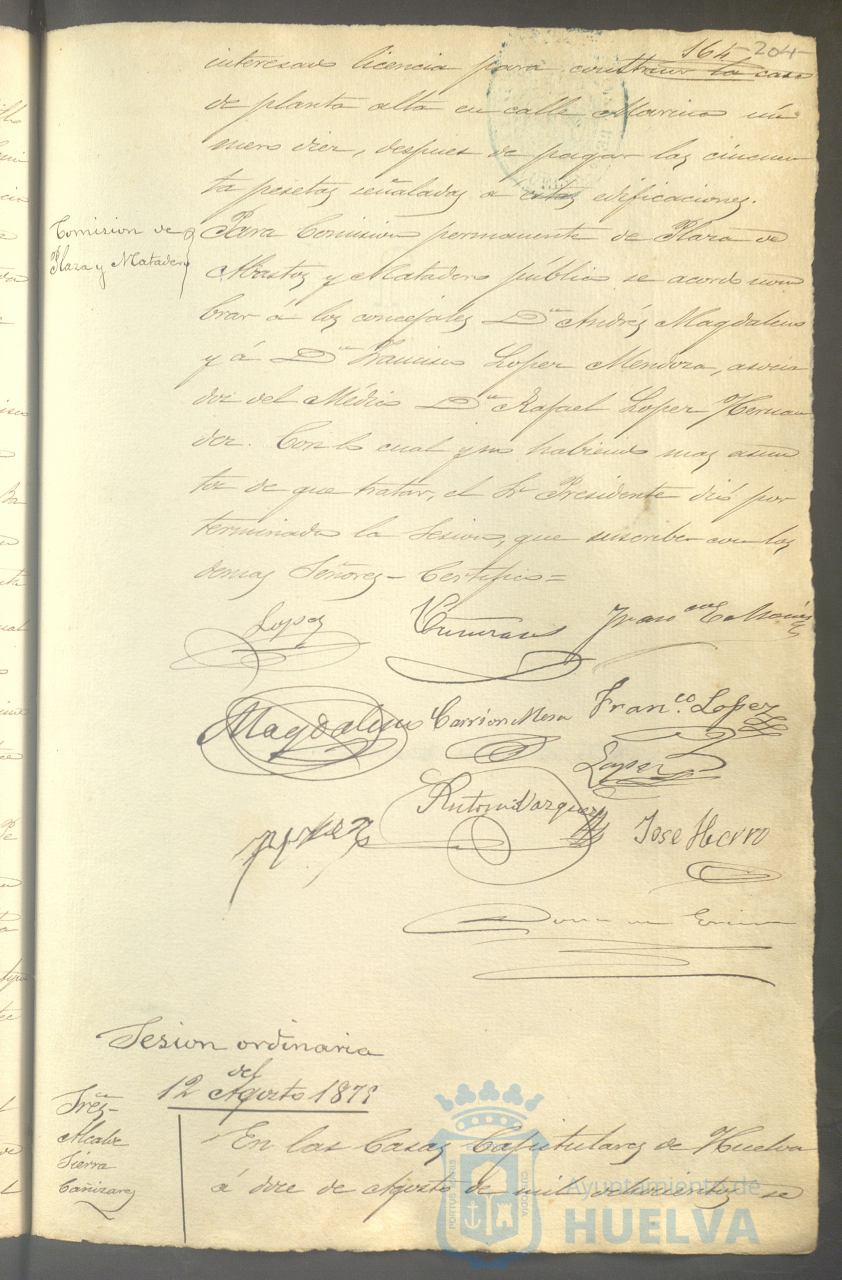 164 204
interesado licencia para construir la casa
de planta alta en calle Marina nú
mero diez, despues de pagar las cincuen
ta pesetas señaladas a estas edificaciones.
Comision de
Plaza y Matadero
Para Comision permanente de Plaza de
Abastos y Matadero público se acordó nom
brar á los concejales Dn Andrés Magdaleno
y á Dn Francisco Lopez Mendoza, asocia
dos del Médico Dn Rafael Lopez Hernan
dez. Con lo cual y no habiendo mas asun
tos de que tratar, el Sr Presidente dió por
terminada la Sesion, que suscribe con los
demas Señores - Certifico =
Lopez
Magdaleno Carrion Mesa Franco Lopez
Lopez
Antonio Vazquez
Jose Hierro
Sesion ordinaria
del
12 Agosto 1879
Sres
Alcalde
Sierra
Cañizares
En las Casas Capitulares de Huelva
á doce de Agosto de mil ochocientos se
Ayuntamiento de
HUELVA
PORTUS MARIS
CUSTODIA